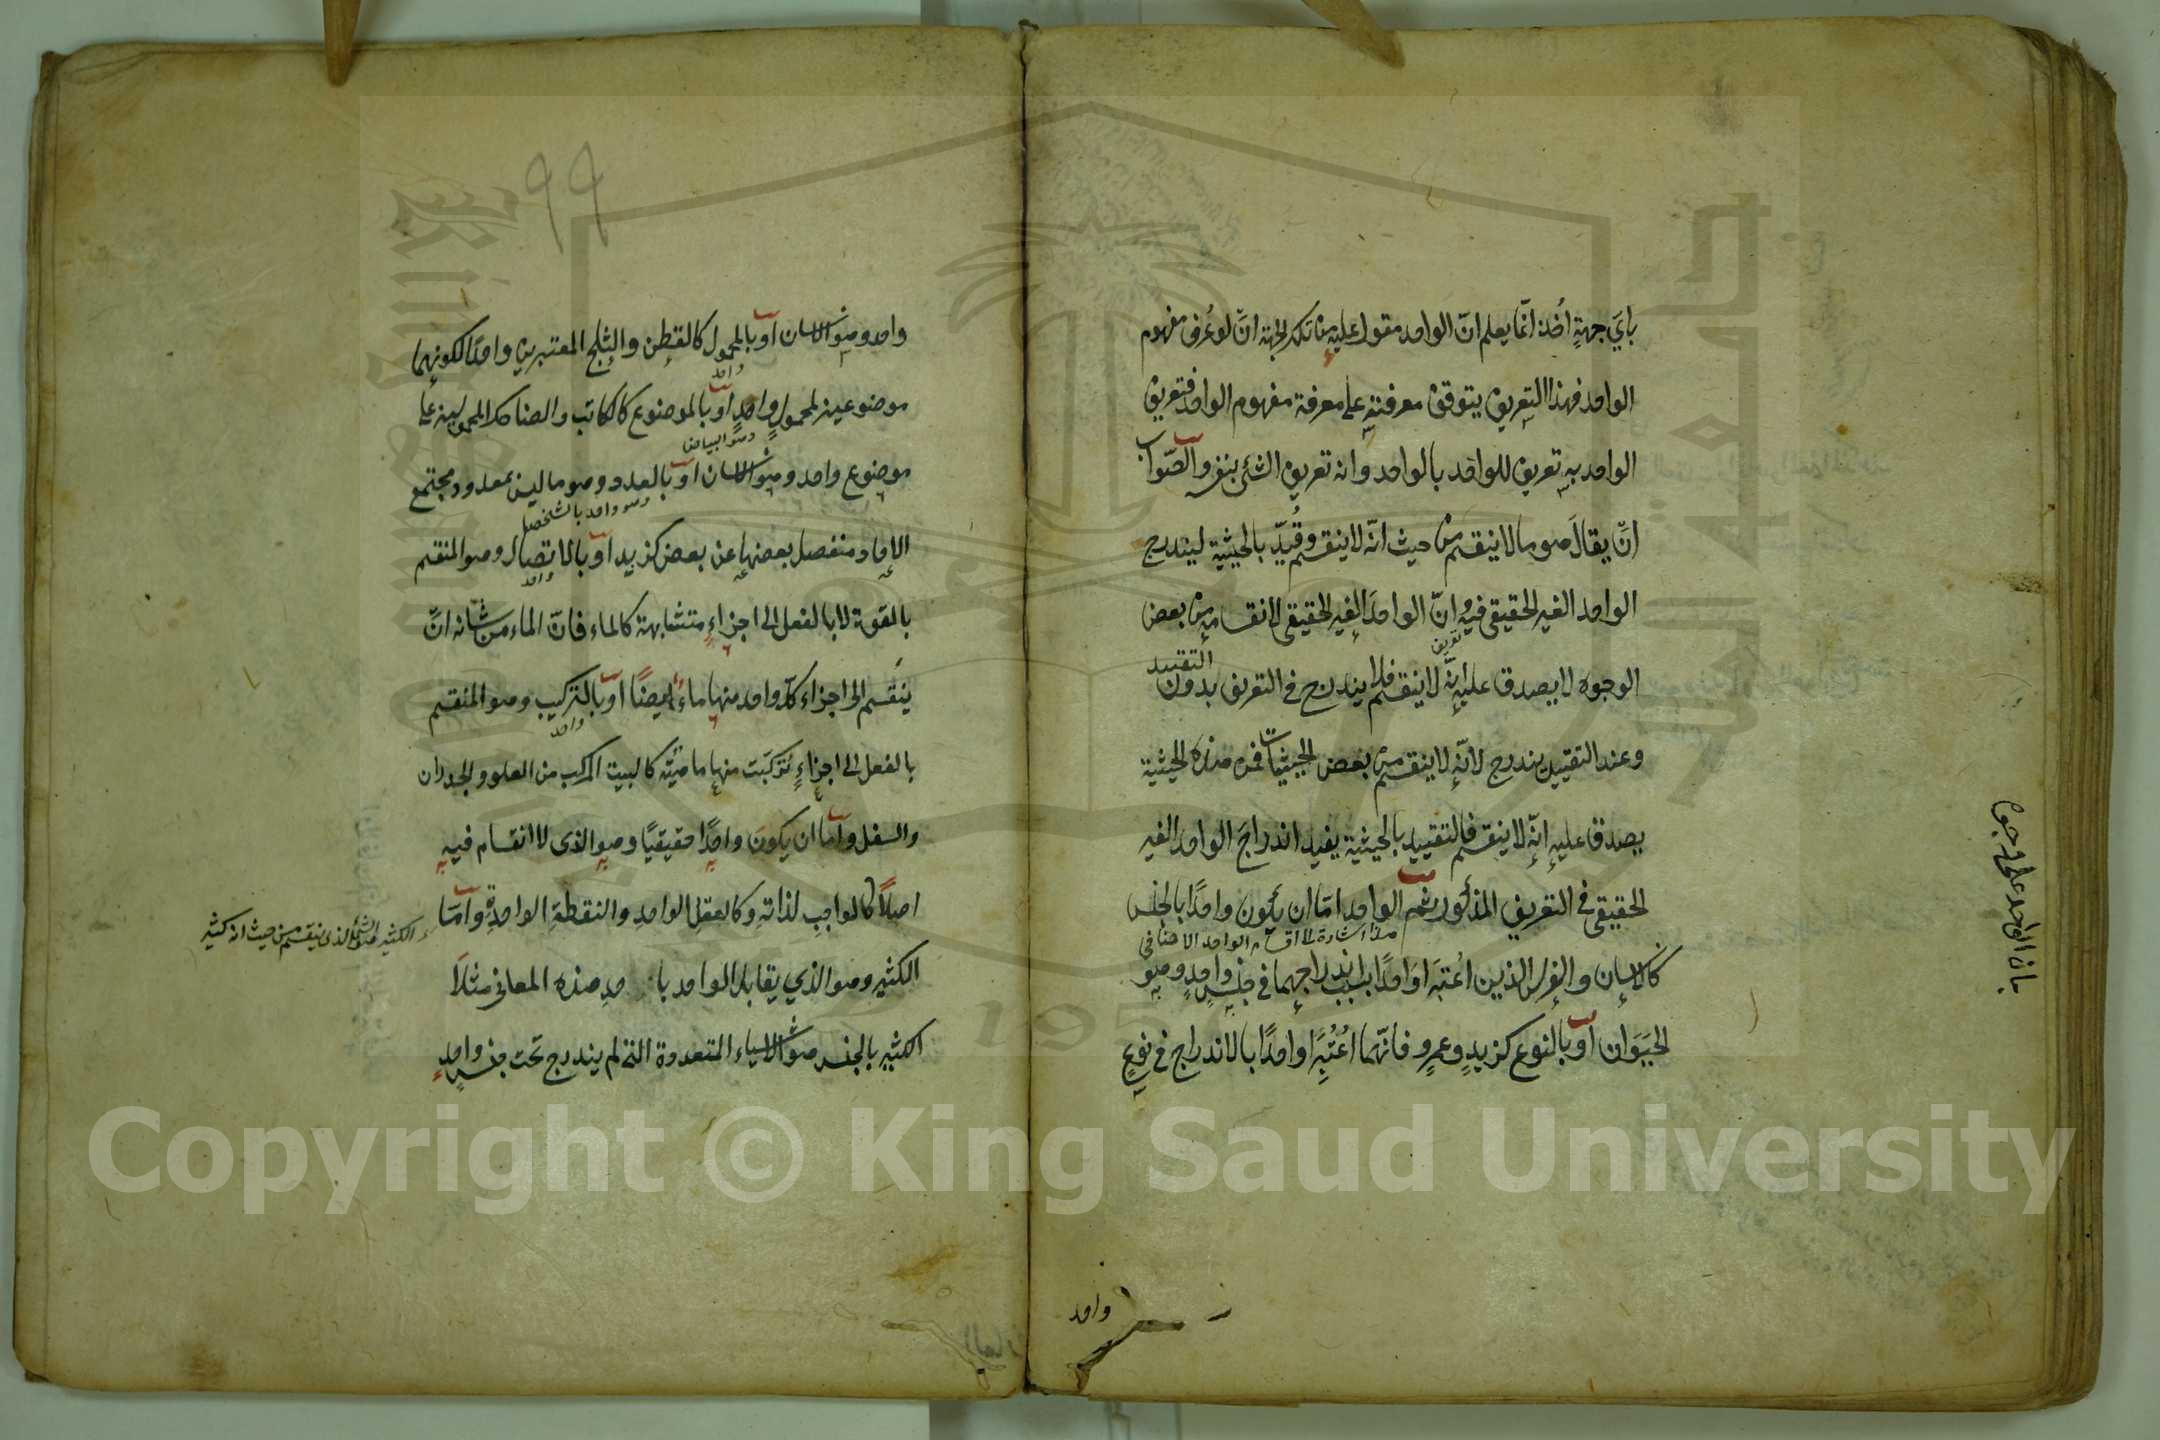 بأي جهةٍ اخذ انما يعلم ان الواحد مقول عليه من تلك الجهة ان لو عُرف مفهوم
الواحد فهذا التعريف يتوقف معرفته على معرفة مفهوم الواحد فتعريف
الواحد به تعريف للواحد بالواحد وانه تعريف الشئ بنفسه والصّواب
انّ يقالَ هو ما لا ينقسم من حيث انّه لا ينقسم وقُيّد بالحيثية ليندرج
الواحد الغير الحقيقى فيه وانّ الواحدَ الغير الحقيقى لانقسامه من بعض
الوجوه لا يصدق عليه انّه لا ينقسم فلا يندرج في التعريف بدون التقييد
تعريف
وعند التقييد يندرج لانّه لا ينقسم من بعض الحيثيات فمن هذه الحيثية
يصدق عليه انّه لا ينقسم فالتقييد بالحيثية يفيد اندراجَ الواحد الغير
الحقيقى في التعريف المذكور ثم الواحد امّا ان يكون واحدًا بالجنس
هذا اشارة الى اقسام الواحد الاضافى
كالانسان والفرس الذين اعتبرا واحدًا بسبب اندراجهما في جنسٍ واحدٍ وهو
الحيَوَان أو بالنوع كزيدٍ وعمرٍو فانّهما اعتُبِرَا واحدًا بالاندراج في نوعٍ
واحد
بان الواحد على وجوه
٩٩
واحد وهو الانسان أو بالمحمول كالقطن والثلج المعتبرين واحدًا لكونهما
واحد
موضوعين لمحمولٍ واحدٍ أو بالموضوع كالكاتب والضاحك المحمولين على
وهو البياض
موضوع واحد وهو الانسان أو بالعدد وهو ما ليس بمعدود مجتمع
وهو واحد بالشخص
الاحاد منفصل بعضها عن بعض كزيد أو بالاتصال وهو المنقسم
واحد
بالقوة لا بالفعل الى اجزاءٍ متشابهة كالماء فانّ الماء من شانه انّ
ينقسم الى اجزاء كلّ واحد منها ماءٌ ايضًا أو بالتركيب وهو المنقسم
واحد
بالفعل الى اجزاءٍ تركبَت منها ماهيّته كالبيت المركب من العلو والجدران
والسفل وامّا ان يكون واحدًا حقيقيًا وهو الذى لا انقسام فيه
اصلاً كالواجب لذاتهِ وكالعقل الواحدِ والنقطةِ الواحدةِ وامّا
الكثير هو الشئ الذى ينقسم من حيث انه كثير
الكثير وهو الذي يقابل الواحد هذه المعانى مثلاً
الكثير بالجنس هو الاشياء المتعددة التى لم يندرج تحت جنسٍ واحدٍ
Copyright © King Saud University